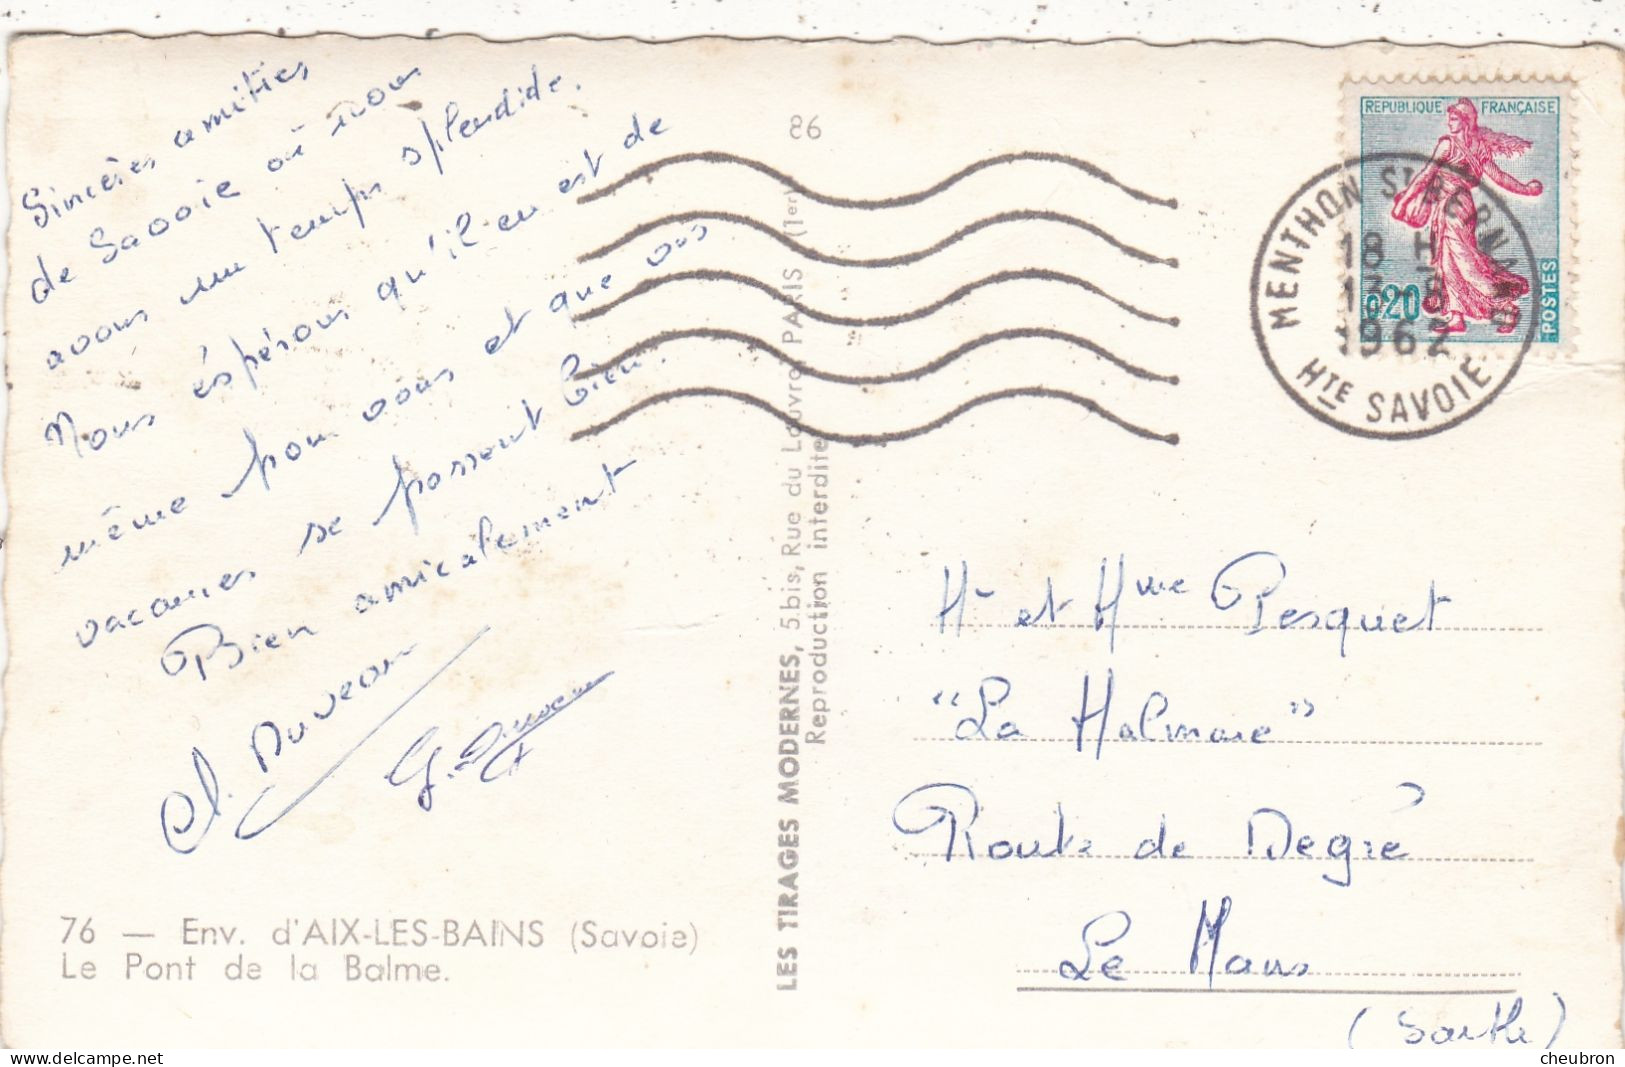 Sincères amitiés
de Savoie où nous
avons un temps splendide.
Nous éspérons qu'il en est de
même pour vous et que vos
vacances se passent bien.
Bien amicalement
Duveau
G.
76 — Env. d'AIX-LES-BAINS (Savoie)
Le Pont de la Balme.
LES TIRAGES MODERNES, 5 bis, Rue du Louvre, PARIS (1er)
Reproduction interdite
86
REPUBLIQUE FRANÇAISE
0,20
POSTES
MENTHON St BERNARD
18 H
1962
Hte SAVOIE
Mr et Mme Pesquet
"La Halmare"
Route de Degré
Le Mans
(Sarthe)
cheubron